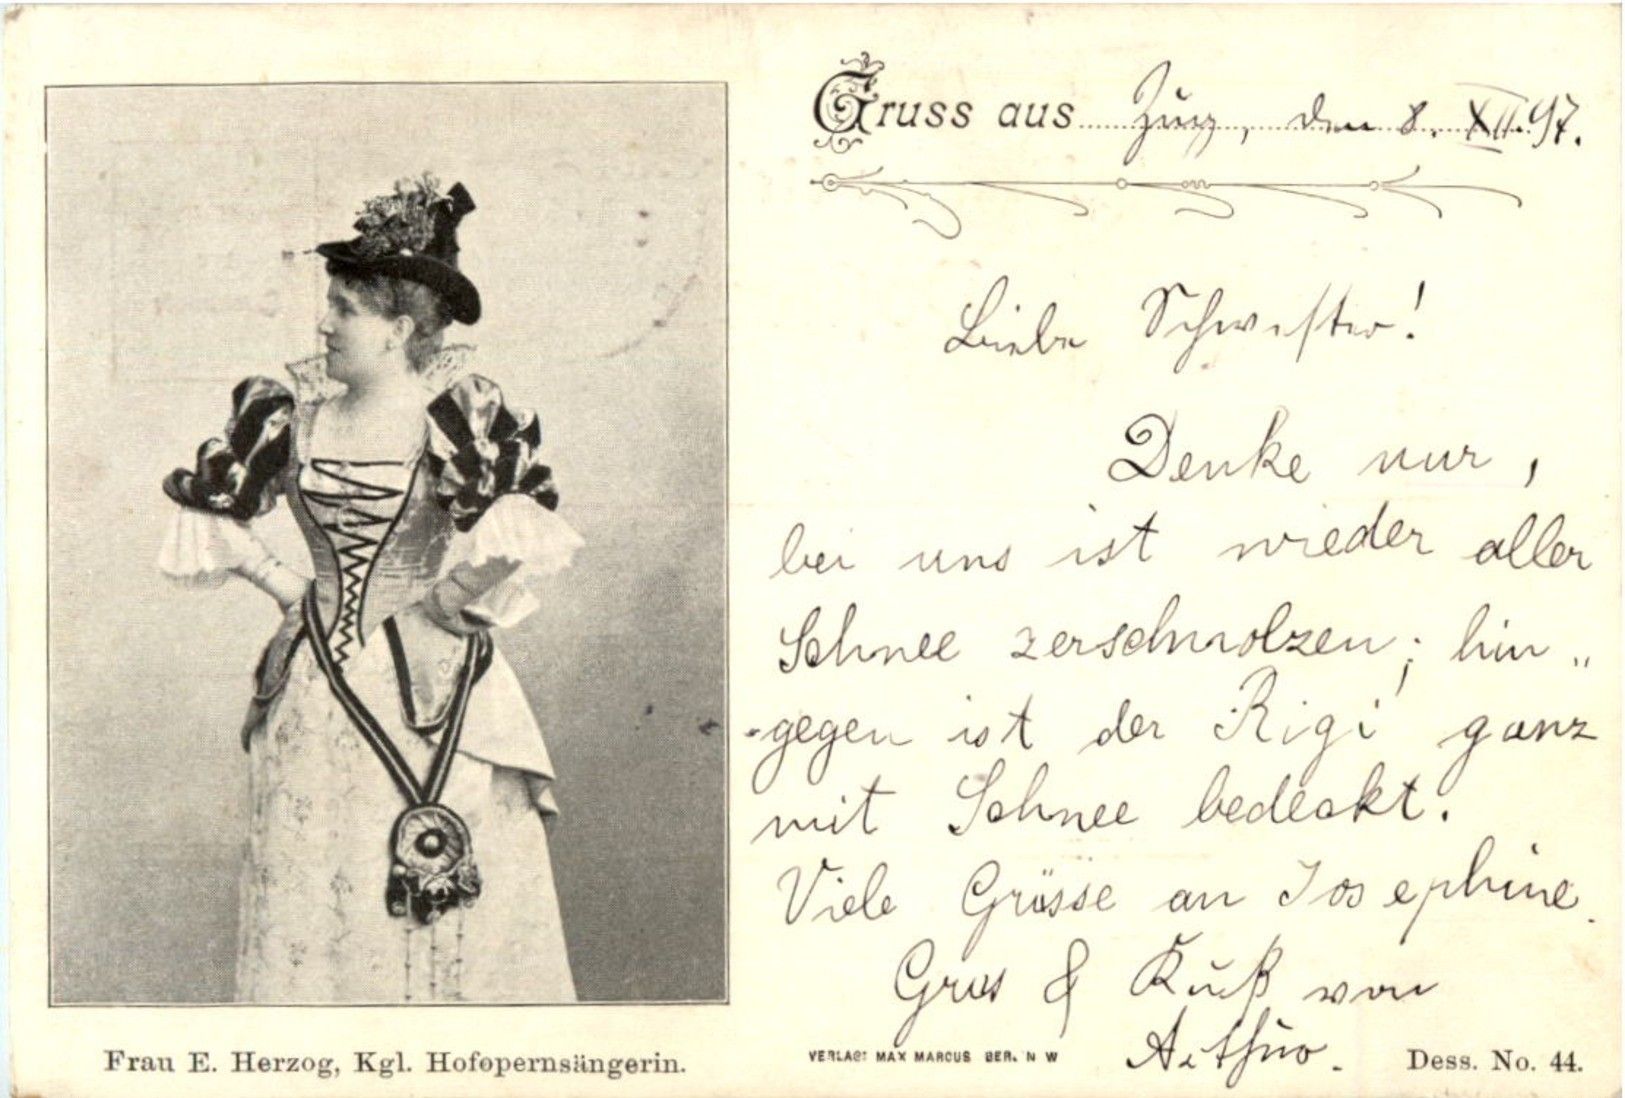 Gruss aus Zug, den 8. XII. 97.
Liebe Schwester!
Denke nur,
bei uns ist wieder aller
Schnee zerschmolzen; hin„
gegen ist der Rigi ganz
mit Schnee bedeckt.
Viele Grüsse an Josephine.
Grus & Kuß von
Arthur.
Frau E. Herzog, Kgl. Hofopernsängerin.
VERLAG: MAX MARCUS BER. N W
Dess. No. 44.